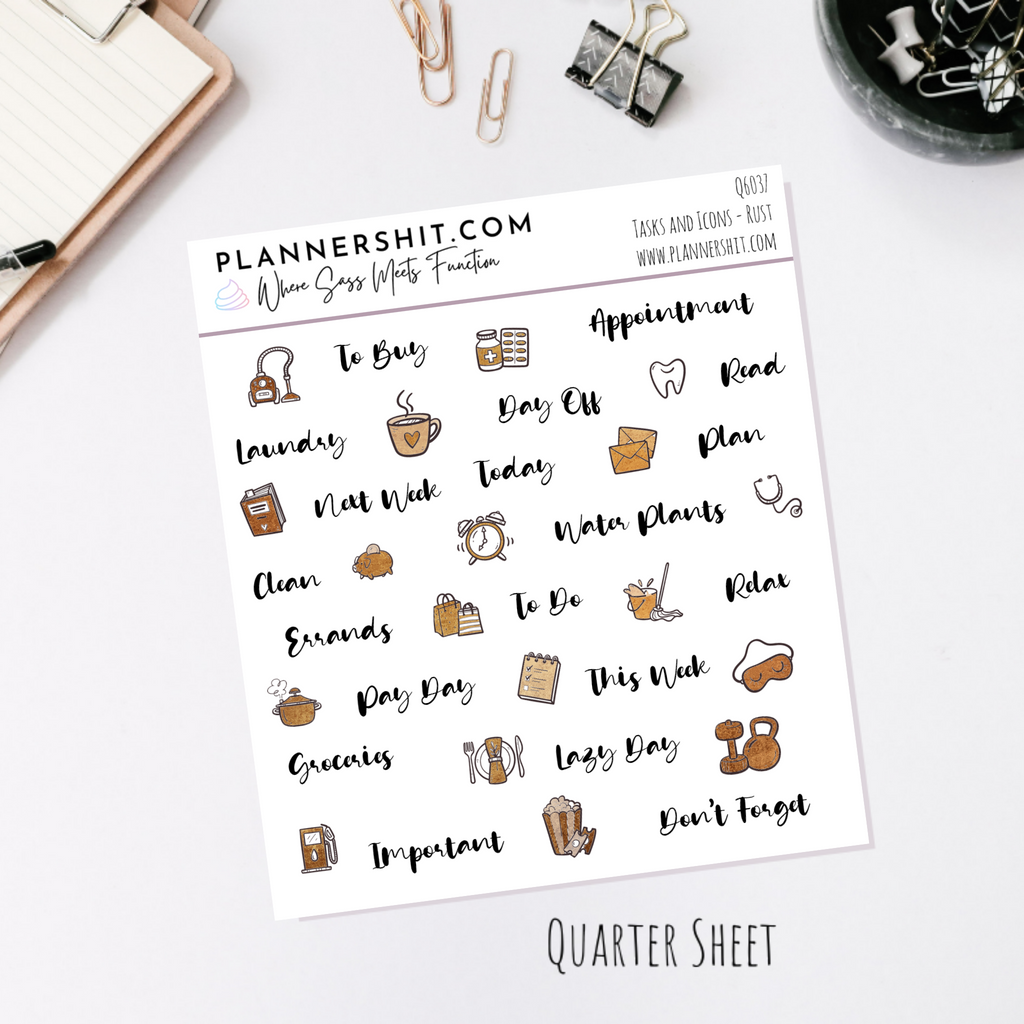 PLANNERSHIT.COM
Where Sass Meets Function
Q6037
Tasks and Icons - Rust
www.plannershit.com
To Buy
Appointment
Read
Day Off
Laundry
Plan
Today
Next Week
Water Plants
Clean
Relax
To Do
Errands
This Week
Pay Day
Lazy Day
Groceries
Don't Forget
Important
Quarter Sheet